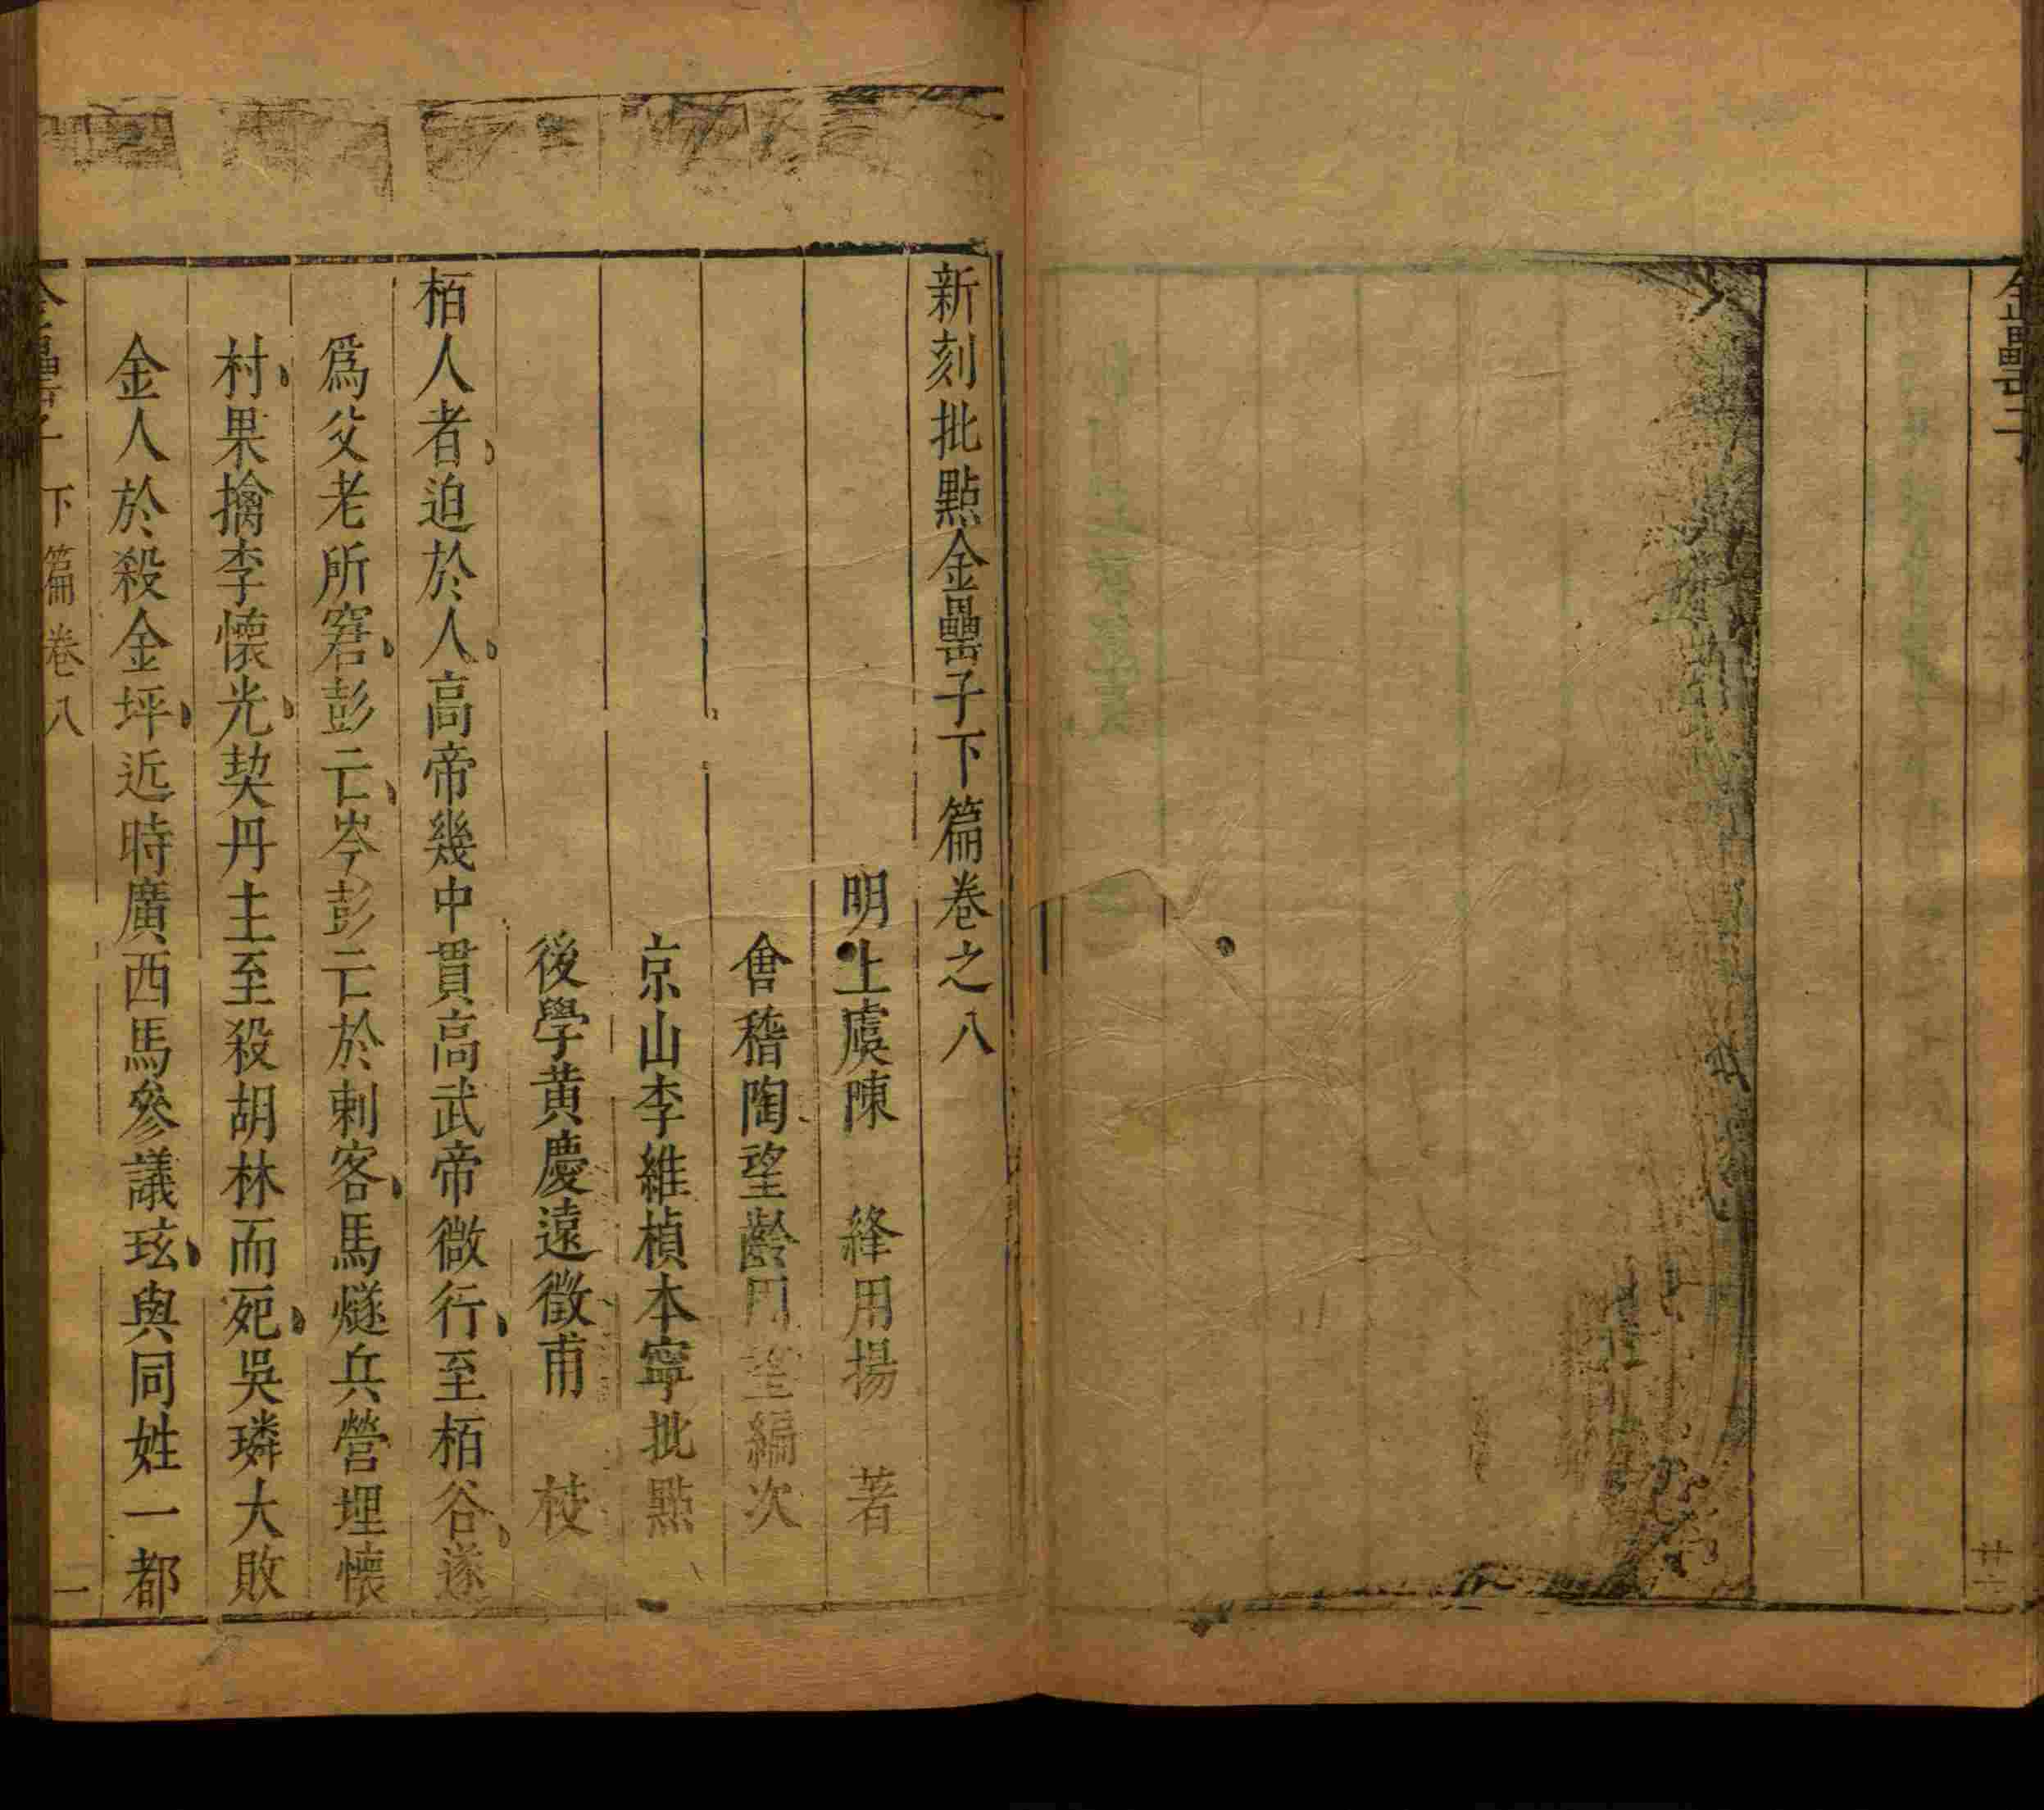 金罍子
廿一
新刻批點金罍子下篇卷之八
明上虞陳　絳用揚　著
會稽陶望齡周望編次
京山李維楨本寧批點
後學黃慶遠徵甫　校
栢人者迫於人高帝幾中貫高武帝微行至栢谷遂
爲父老所窘彭亡岑彭亡於刺客馬燧兵營埋懷
村果擒李懷光契丹主至殺胡林而死吳璘大敗
金人於殺金坪近時廣西馬參議玹與同姓一都
金罍子　下篇卷八　一